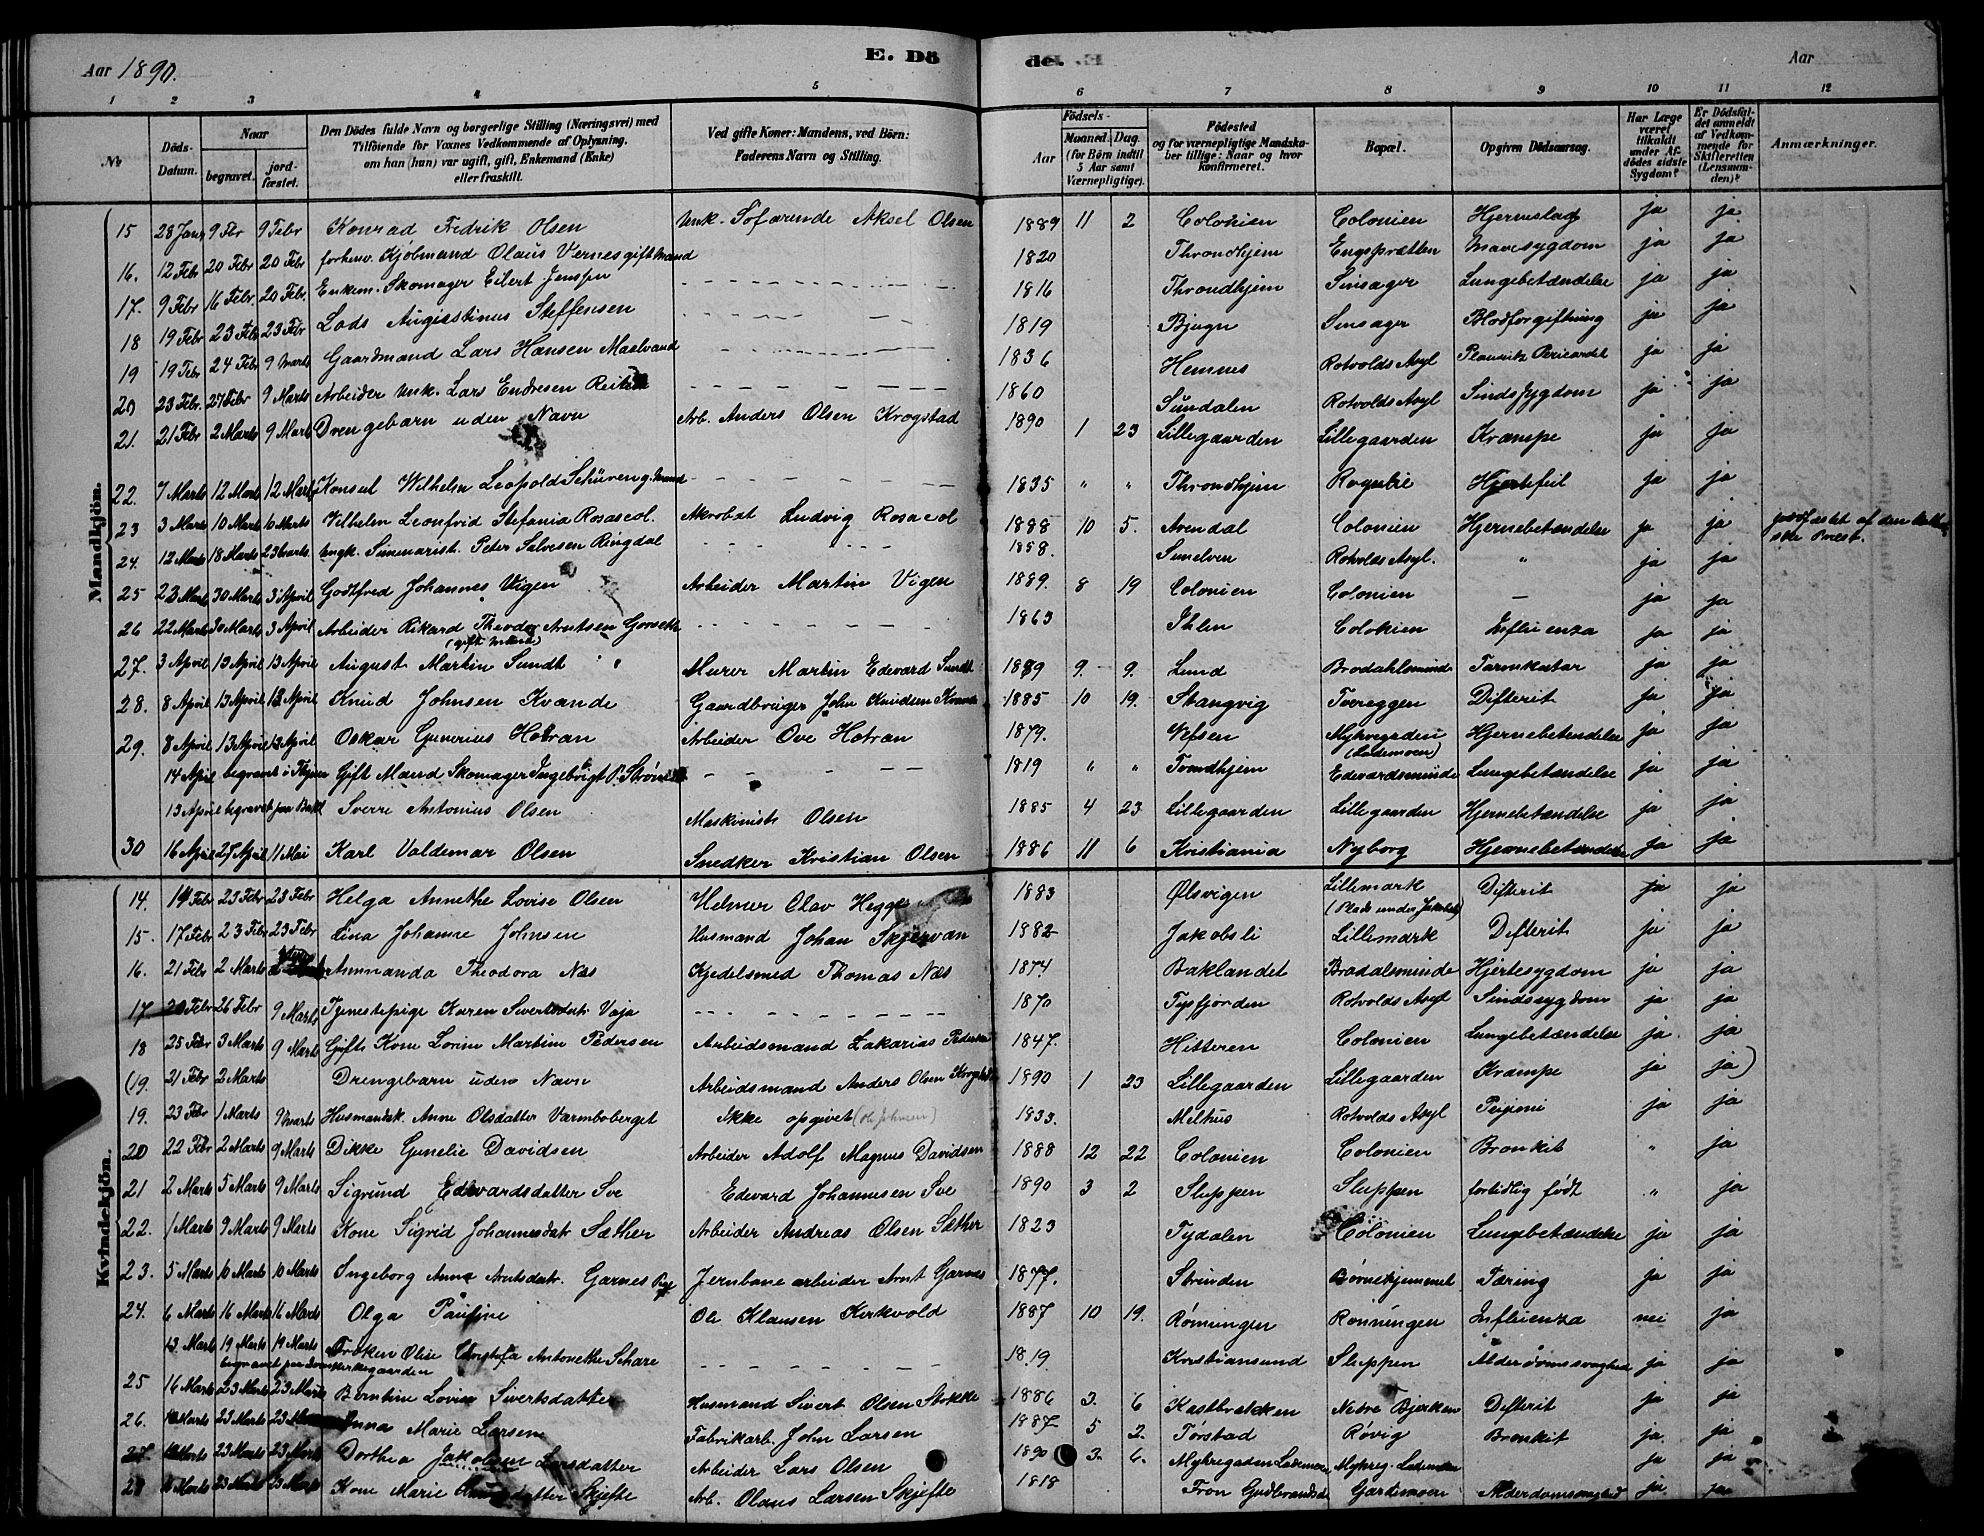 Aar 1890. E. Dö de. Aar
1 2 3 4 5 6 7 8 9 10 11 12
No Döds-Datum. Naar begravet. jordfæstet. Den Dödes fulde Navn og borgerlige Stilling (Næringsvei) med Tilföiende for Voxnes Vedkommende af Oplysning, om han (hun) var ugift, gift, Enkemand (Enke) eller fraskilt. Ved gifte Koner: Mandens, ved Börn: Faderens Navn og Stilling. Födsels- Aar Maaned. Dag. (for Börn indtil 5 Aar samt Værnepligtige). Födested og for værnepligtige Mandskaber tillige: Naar og hvor Konfirmeret. Bopæl. Opgiven Dödsaarsag. Har Læge været tilkaldt under Afdödes sidste Sygdom? Er Dödsfaldet anmeldt af Vedkommende for Skifteretten (Lensmanden)? Anmærkninger.
Mandkjön.
15 28 Janr 9 Febr 9 Febr Konrad Fedrik Olsen Unk. Söfarende Aksel Olsen 1889 11 2 Colonien Colonien Hjerneslag ja ja
16. 12 Febr 20 Febr 20 Febr forhenv. Kjöbmand Olaus Vernes gift Mand 1820 Throndhjem Engsprætten Mavesygdom ja ja
17. 9 Febr 16 Febr. 20 Febr. Enkem. Skomager Eilert Jensen 1816 Throndhjem Sinsager Lungebetændelse ja ja
18 19 Febr 23 Febr 23 Febr Lods Augustinus Steffensen 1819 Bjugn Sinsager Blodforgiftning ja ja
19 19 Febr 24 Febr 9 Marts Gaardmand Lars Hansen 1836 Hemnes Rotvolds Asyl ja ja
20 23 Febr. 27 Febr 9 Marts Arbeider Unk. Lars Endresen 1860 Sundalen Rotvolds Asyl Sindssygdom ja ja
21. 21 Febr 2 Marts 9 Marts Drengebarn uden Navn Arb. Anders Olsen Krogstad 1890 1 23 Lillegaarden Lillegaarden Krampe ja ja
22. 7 Marts 12 Marts 12 Marts Konsul Wilhelm Leopold 1835 " " Throndhjem Hjertefeil ja ja
23 3 Marts 10 Marts 10 Marts Vilhelm Leonfrid Stefania Rosascol. Akrobat Ludvig Rosacol 1888 10 5. Arendal Colonien Hjernebetændelse ja ja jordfæstet af den Præst.
24. 12 Marts 18 Marts 23 Marts Ungk. Peter Salvesen Ringdal 1858. Sunelven Rotvolds Asyl. " ja ja
25 23 Marts 30 Marts 3 April Godtfred Johannes Vigen Arbeider Martin Vigen 1889. 8 19 Colonien Colonien — ja ja
26 22 Marts 30 Marts 3 April Arbeider Rikard Theodor Arntsen 1863 Ihlen Colonien Influenza ja ja
(gift Mand)
27. 3 April 13 April 13 April August Martin Sundt " Murer Martin Edevard Sundt 1889 9. 9. Lund Brodahlsminde Tarmkatar ja ja
28. 8 April 13 April 13 April Knud Johnsen Kvande Gaardbruger John Knudsen Kvande 1885 10 19. Stangvig Tvereggen Difterit ja ja
29. 8 April 13 April 13 April Oskar Gunerius Hotran Arbeider Ove Hotran 1879. Vefsen Myhregaden (Lademoen) Hjernebetændelse ja ja
14 April begravet i Gift Mand Skomager Ingebrigt P. 1819 " " Trondhjem Edevardsminde Lungebetændelse ja ja
13 April begravet paa Bakl Sverre Antonius Olsen Maskinist Olsen 1885 4 23 Lillegaarden Lillegaarden Hjernebetændelse ja ja
30 16 April 27 April 11 Mai Karl Valdemar Olsen Snedker Kristian Olsen 1886 11 6 Kristiania Nyborg Hjernebetændelse ja ja
Kvindekjön.
14. 14 Febr 23 Febr 23 Febr Helga Annethe Lovise Olsen Helmer Olav Hegge 1883 Ølsvigen Lillemark (Plads under Jakobsli) Difterit ja ja
15. 17 Febr 23 Febr 23 Febr Lina Johanne Johnsen Husmand Johan Skjervan 1882 Jakobsli Lillemark Difterit ja ja
16. 21 Febr 2 Marts Amnanda Theodora Næs Kjedelsmed Thomas Næs 1874 Baklandet Brodalsminde Hjertesygdom ja ja
17 20 Febr 26 Febr 9 Marts Tjenestepige Karen Sivertsdatr Vaja 1870 Tysfjorden Rotvolds Asyl Sindssygdom ja ja
18 25 Febr 3 Marts 9 Marts Gift Kone Lorine Martine Pedersen Arbeidsmand Zakarias Pedersen 1847. Hitteren Colonien Lungebetændelse ja ja
(19. 21 Febr 2 Marts Drengebarn uden Navn Arbeidsmand Anders Olsen Krogstad 1890 1 23 Lillegaarden Lillegaarden Krampe ja ja)
19. 23 Febr 1 Marts 9 Marts Husmandsk. Anne Olsdatter Varmboberget Ikke opgivet (Ole Johnsen) 1833. Melhus Rotvolds Asyl ja ja
20 22 Febr 2 Marts 9 Marts Dikke Gunelie Davidsen Arbeider Adolf Magnus Davidsen 1888 12 22 Colonien Colonien Bronkit " ja
21 2 Marts 5 Marts 9 Marts Sigrund Edevardsdatter Sve Edevard Johannesen Sve 1890 3 2 Sluppen Sluppen fortidlig født " ja
22. 1 Marts 9 Marts 9 Marts Kone Sigrid Johannesdatr Sæther Arbeider Andreas Olsen Sæther 1823 Tydalen Colonien Lungebetændelse ja ja
23. 5 Marts 10 Marts 10 Marts Ingeborg Anna Arntsdatr. Garnes Pige Jernbanearbeider Arnt Garnes 1877. Strinden Børnehjemmet Tæring ja ja
24. 6 Marts 16 Marts 16 Marts Olga Pauline Ole Klausen Kirkvold 1887 10 19. Rønningen Rønningen Influenza nei ja
13 Marts 19 Marts 19 Marts Frøken Oline Antonette Schare 1819. Kristiansund Sluppen Alderdomssvaghed ja ja
begravet paa Domkirkegaarden
25 16 Marts 23 Marts 23 Marts Berntine Lovise Sivertsdatter Husmand Sivert Olsen Stokke 1886 3. 6 Kastbrekken Nedre Bjerken Difterit ja ja
26. Marts 23 Marts 23 Anna Marie Larsen Fabrikarb. John Larsen 1887 5 2. Tørstad Røvig Bronkit ja ja
27 Marts 23 Marts 23 Marts Dorthea Jakobine Larsdatter Arbeider Lars Olsen 1890 3. 6. Myhregaden Lademoen Myhreg. Lademoen ja ja
28 Marts 23 Marts 23 Marts Kone Marie Skjefte Arb. Olaus Larsen Skjefte 1818 Fron Gudbrandsd Gardemoen Alderdomssvaghed ja ja